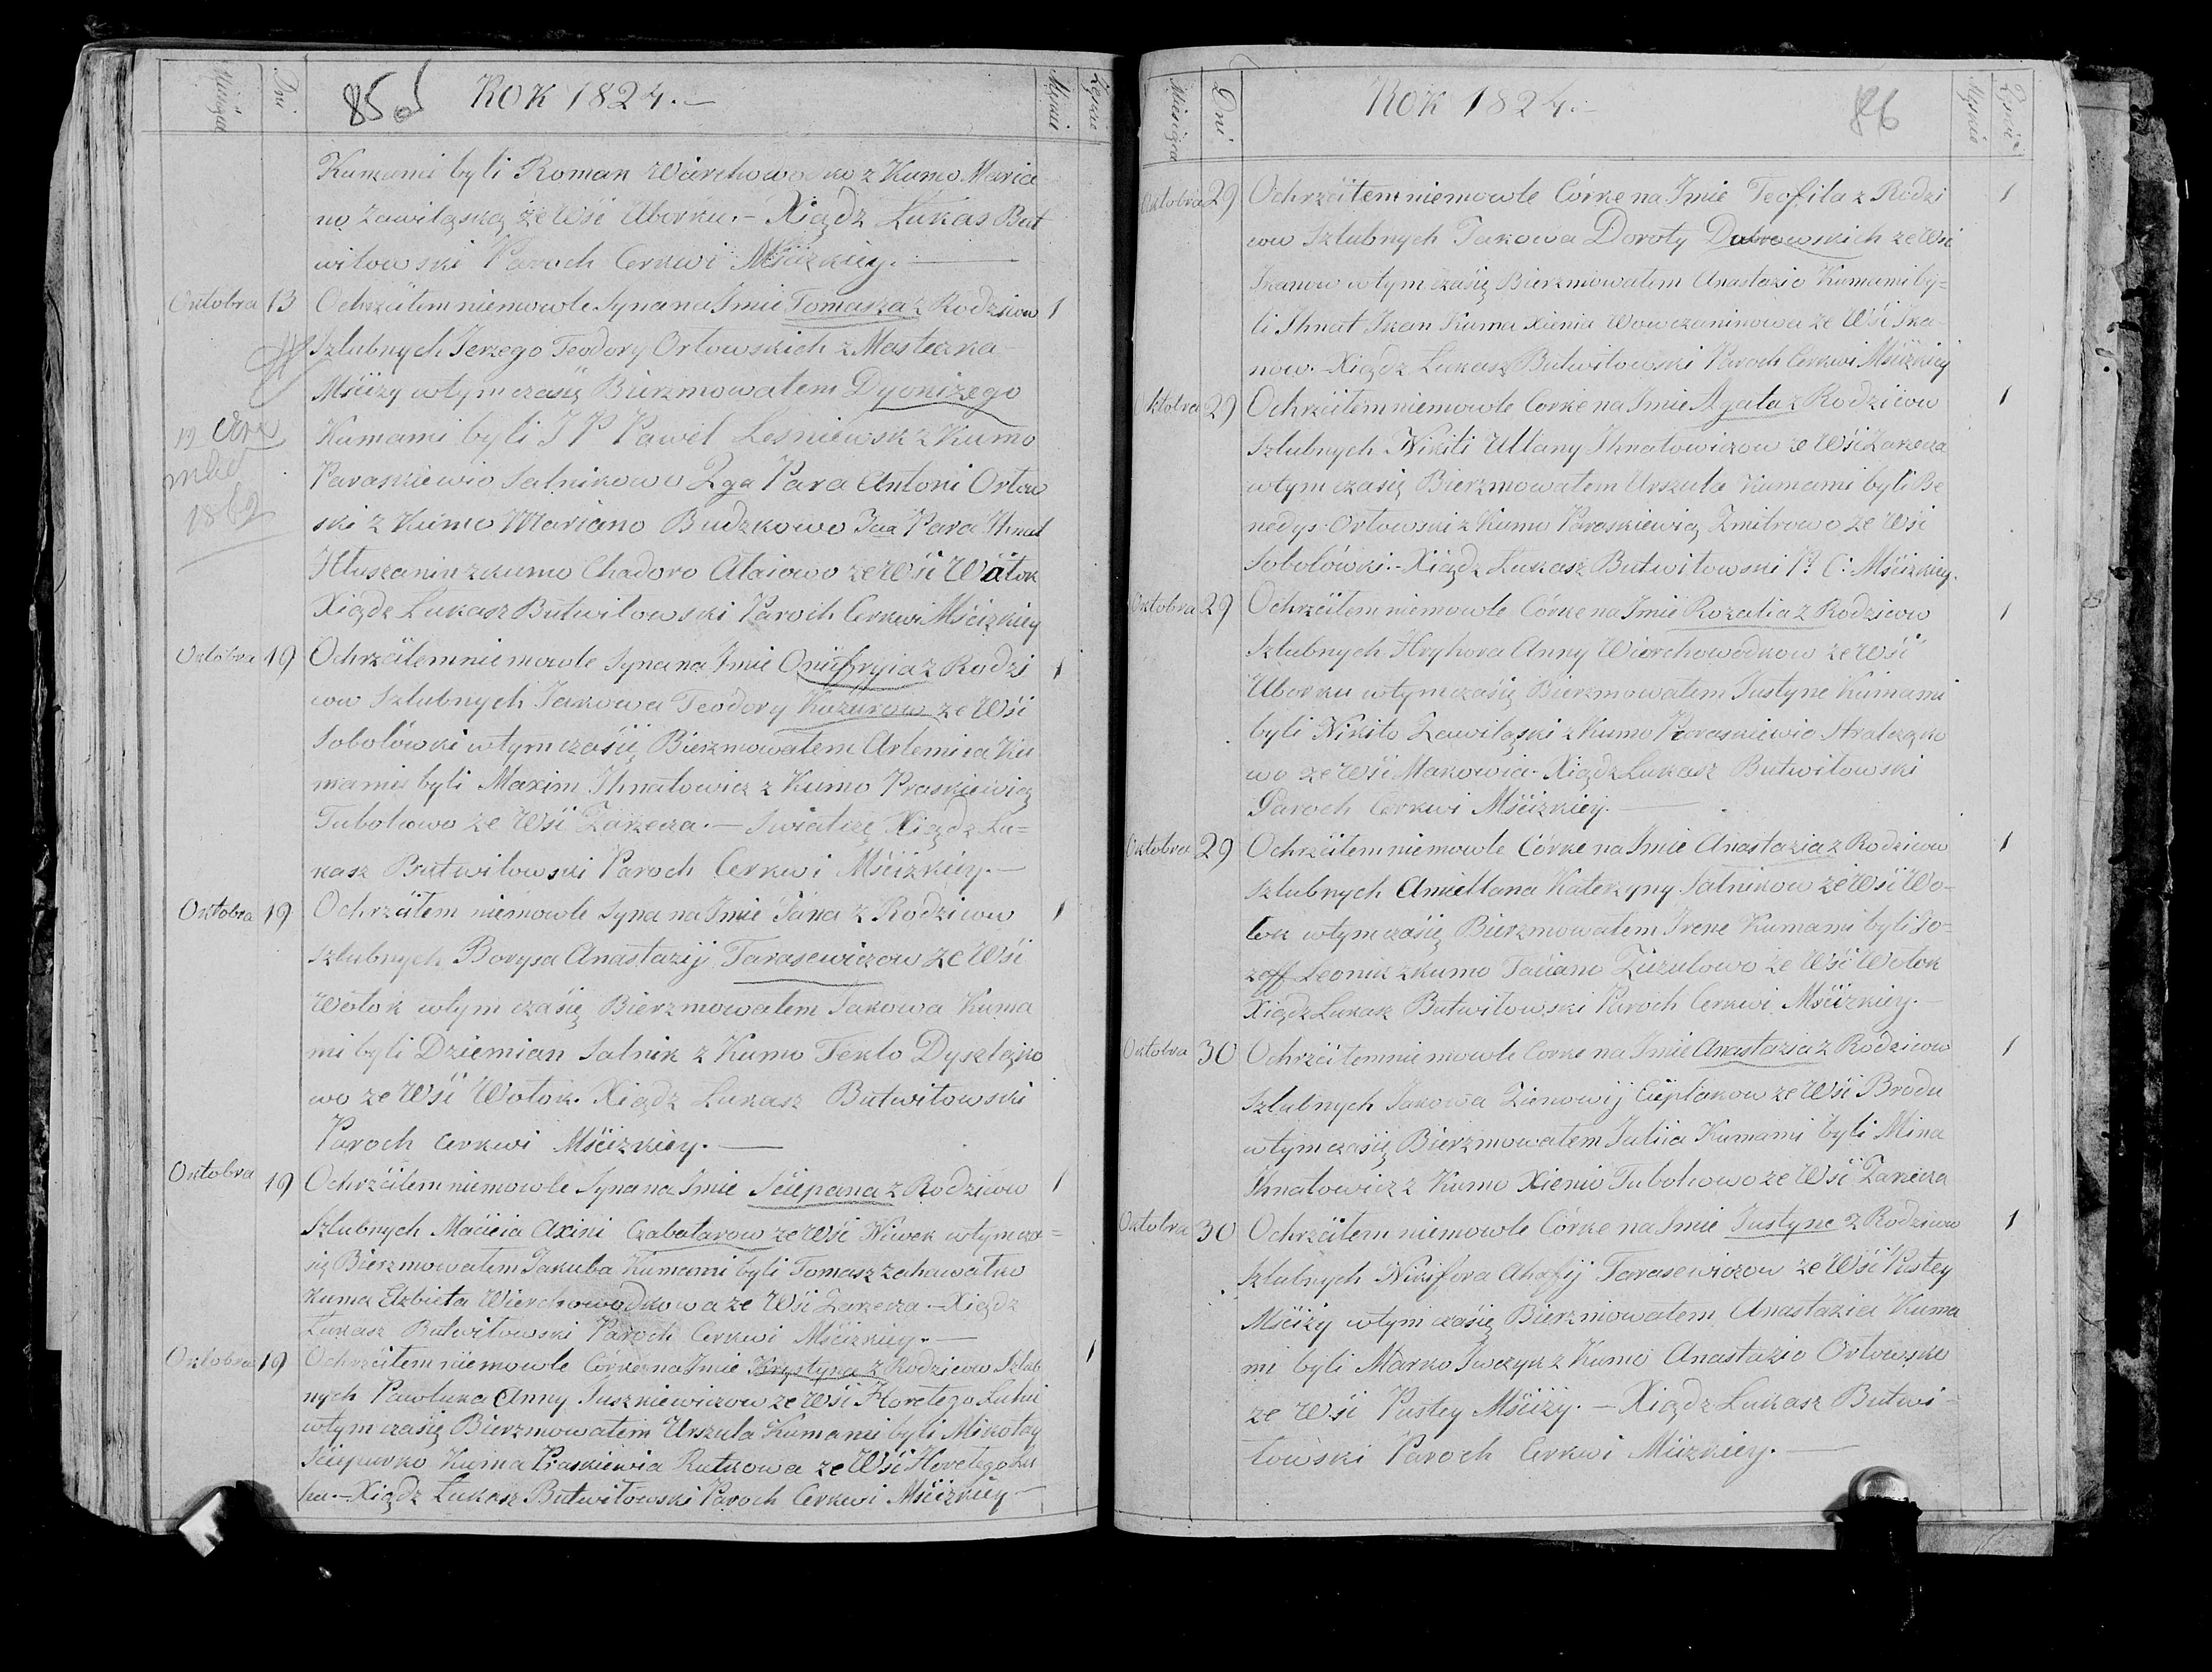 Miesiąca Dni 85 ROK 1824.— Męskie Żeńskie
Kumami byli Roman Wierchowodko z Kumo Maria
no Zawiląską ze Wśi Uborku.– Xiądz Łukas But
wiłowski Paroch Cerkwi Mściżkiey.—
Oktobra 13 Ochrzciłem niemowle Syna na Jmie Tomasza z Rodziców 1
Szlubnych Jerzego Teodory Orłowskich z Masteczka
Mściży wtym czasię Bierzmowałem Dyonizego
Kumami byli J P Paweł Lesniewsk z Kumo
19
1862
Paraskiewio Salnikowo 2ga Para Antoni Orłow
ski z Kumo Mariano Budzkowo 3cia Para Ihnat
Hłuszanin z kumo Chadoro Ałaiowo ze Wśi Wołok
Xiądz Łukasz Butwiłowski Paroch Cerkwi Mściżkiey
Oktobra 19 Ochrzciłem niemowle Syna na Jmie Onufryia z Rodzi 1
cow Szlubnych Jakowa Teodory Kuzurow ze Wśi
Sobolówki wtym czasię Bierzmowałem Artemiia Ku
mamy byli Maxim Ihnatowicz z Kumo Praskiewią
Tubolcowo ze Wśi Zarzecza.— Swiatczę Xiądz Łu=
kasz Butwiłowski Paroch Cerkwi Mściżkiey.—
Oktobra 19 Ochrzciłem niemowle Syna na Jmie Jana z Rodzicow 1
Szlubnych Borysa Anastazij Tarasewiczow ze Wśi
Wołok wtym czasię Bierzmowałem Jakowa Kuma
mi byli Dziemian Salnik z Kumo Teklo Dyszlęko
wo ze Wśi Wołok. Xiądz Łukasz Butwiłowski
Paroch Cerkwi Mściżkiey.—
Oktobra 19 Ochrzciłem niemowle Syna na Jmie Sciepana z Rodzicow 1
Szlubnych Macieia Axini Czabatarow ze Wśi Niwek wtym cza=
się Bierzmowałem Jakuba Kumami byli Tomasz Zahawałko
Kuma Elzbieta Wierchowodkowa ze Wśi Zarzecza.—Xiądz
Łukasz Butwiłowski Paroch Cerkwi Mściżkiey.—
Oktobra 19 Ochrzciłem niemowle Córkę na Jmie Krystyna z Rodzicow Szlub 1
nych Pawluka Anny Juszkiewiczow ze Wśi Horełego Luhu
wtym czasię Bierzmowałem Urszula Kumami byli Mikołay
Sciepurko Kuma Praskiewia Rutkowa ze Wśi Horełego Lu
hu.—Xiądz Łukasz Butwiłowski Paroch Cerkwi Mściżkiey—
Miesiąca Dni ROK 1824.— 86 Męskie Żeńskie
Oktobra 29 Ochrzciłem niemowle Córke na Jmie Teofila z Rodzi 1
cow Szlubnych Jakowa Doroty Dubrowskich ze Wśi
Ikanow wtym czasię Bierzmowałem Anastazio Kumami by=
li Ihnat Ikan Kuma Xienia Wowczaninowa ze Wśi Ika
now.–Xiądz Łukasz Butwiłowski Paroch Cerkwi Mściżkiey
Oktobra 29 Ochrzciłem niemowle Corke na Jmie Agata z Rodzicow 1
Szlubnych Nikiti Ullany Ihnatowiczow ze Wśi Zarzecza
wtym czasię Bierzmowałem Urszula Kumami byli Be
nedys Orłowski z Kumo Paraskiewią Zmitrowo ze Wśi
Sobolówki.–Xiądz Łukasz Butwiłowski P. C: Mściżkiey.
Oktobra 29 Ochrzciłem niemowle Córke na Jmie Rozalia z Rodzicow 1
Szlubnych Hryhora Anny Wierchowodkow ze Wśi
Uborku wtym czasię Bierzmowałem Justyne Kumami
byli Nikito Zawiląski z Kumo Paraskiewio Strałczęko
wo ze Wśi Makowia. Xiądz Łukasz Butwiłowski
Paroch Cerkwi Mściżkiey.—
Oktobra 29 Ochrzciłem niemowle Córke na Jmie Anastazia z Rodzicow 1
Szlubnych Amiellana Katerzyny Salnikow ze Wśi Wo-
łok wtym czasię Bierzmowałem Irene Kumami byli Jo-
zeff Leonik z kumo Taciano Zuzulowo ze Wśi Wołok
Xiądz Łukasz Butwiłowski Paroch Cerkwi Mściżkiey.—
Oktobra 30 Ochrzciłem niemowle Corke na Jmie Anastazia z Rodzicow 1
Szlubnych Jakowa Zienowij Cieplakow ze Wśi Brodu
wtym czasię Bierzmowałem Juliia Kumami byli Mina
Ihnatowicz z Kumo Xienio Tubolcowo ze Wśi Zarzecza
Oktobra 30 Ochrzciłem niemowle Córke na Jmie Justyne z Rodzicow 1
Szlubnych Nikifora Ahafij Tarasewiczow ze Wśi Pustey
Mściży wtym czasię Bierzmowałem Anastazia Kuma
mi byli Marko Iwczyk z Kumo Anastazio Orłowsko
ze Wśi Pustey Mściży.—Xiądz Łukasz Butwi-
łowski Paroch Cerkwi Mściżkiey.—